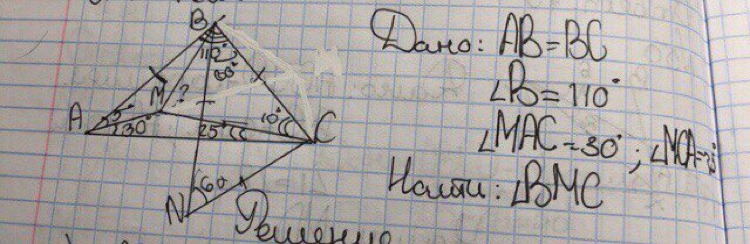 Дано: AB=BC
∠B=110°
∠MAC=30°; ∠MCA=25°
Найти: ∠BMC
B
110°
60°
M
?
A
5°
30°
25°
10°
C
60
N
Решение